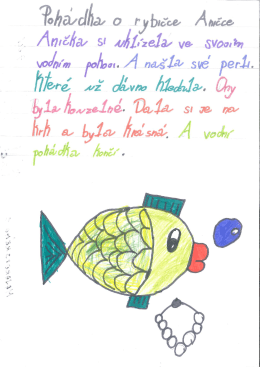 Pohádka o rybičce Aničce
Anička si uklízela ve svooim
vodním pokoii. A našla své perli.
které už dávno hledala. Ony
byla kouzelné. Dala si je na
krk a byla krásná. A vodní
pohádka končí.